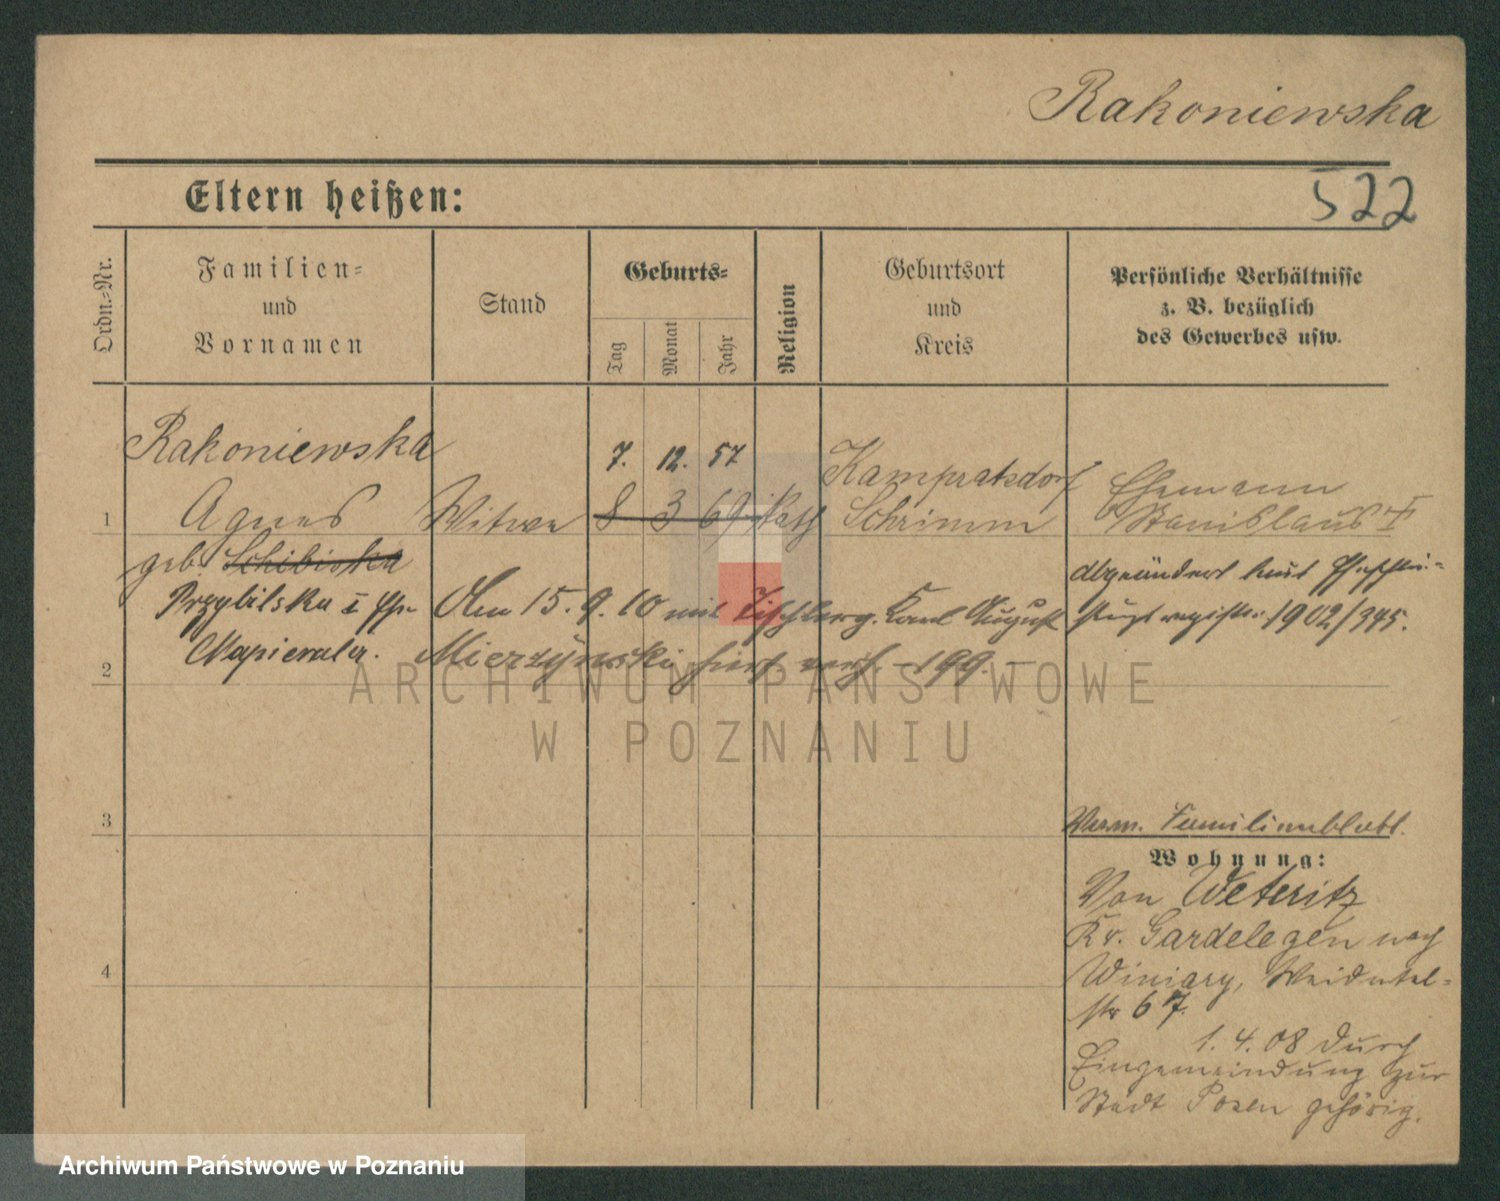 Rakoniewska
522
Eltern heißen:
Ordn.=Nr.
Familien=
und
Vornamen
Stand
Geburts=
Tag
Monat
Jahr
Religion
Geburtsort
und
Kreis
Persönliche Verhältnisse
z. B. bezüglich
des Gewerbes usw.
Rakoniewska
7. 12. 57
Kampratsdorf
Ehemann
1
Agnes
Witwe
8 3 69
Kath
Schrimm
Stanislaus †
geb. Schibiska
abgeändert laut
Przybilska I
Am 15. 9. 10 mit Tischlerg. Karl August
1902/345.
Napierala.
Mierzynski hier verh. - 199. -
2
ARCHIWUM PAŃSTWOWE
W POZNANIU
3
Verm. Familienblatt.
Wohnung:
Von Weteritz
Kr. Gardelegen nach
4
Winiary,
str 67.
1. 4. 08 durch
Eingemeindung zur
Stadt Posen gehörig.
Archiwum Państwowe w Poznaniu